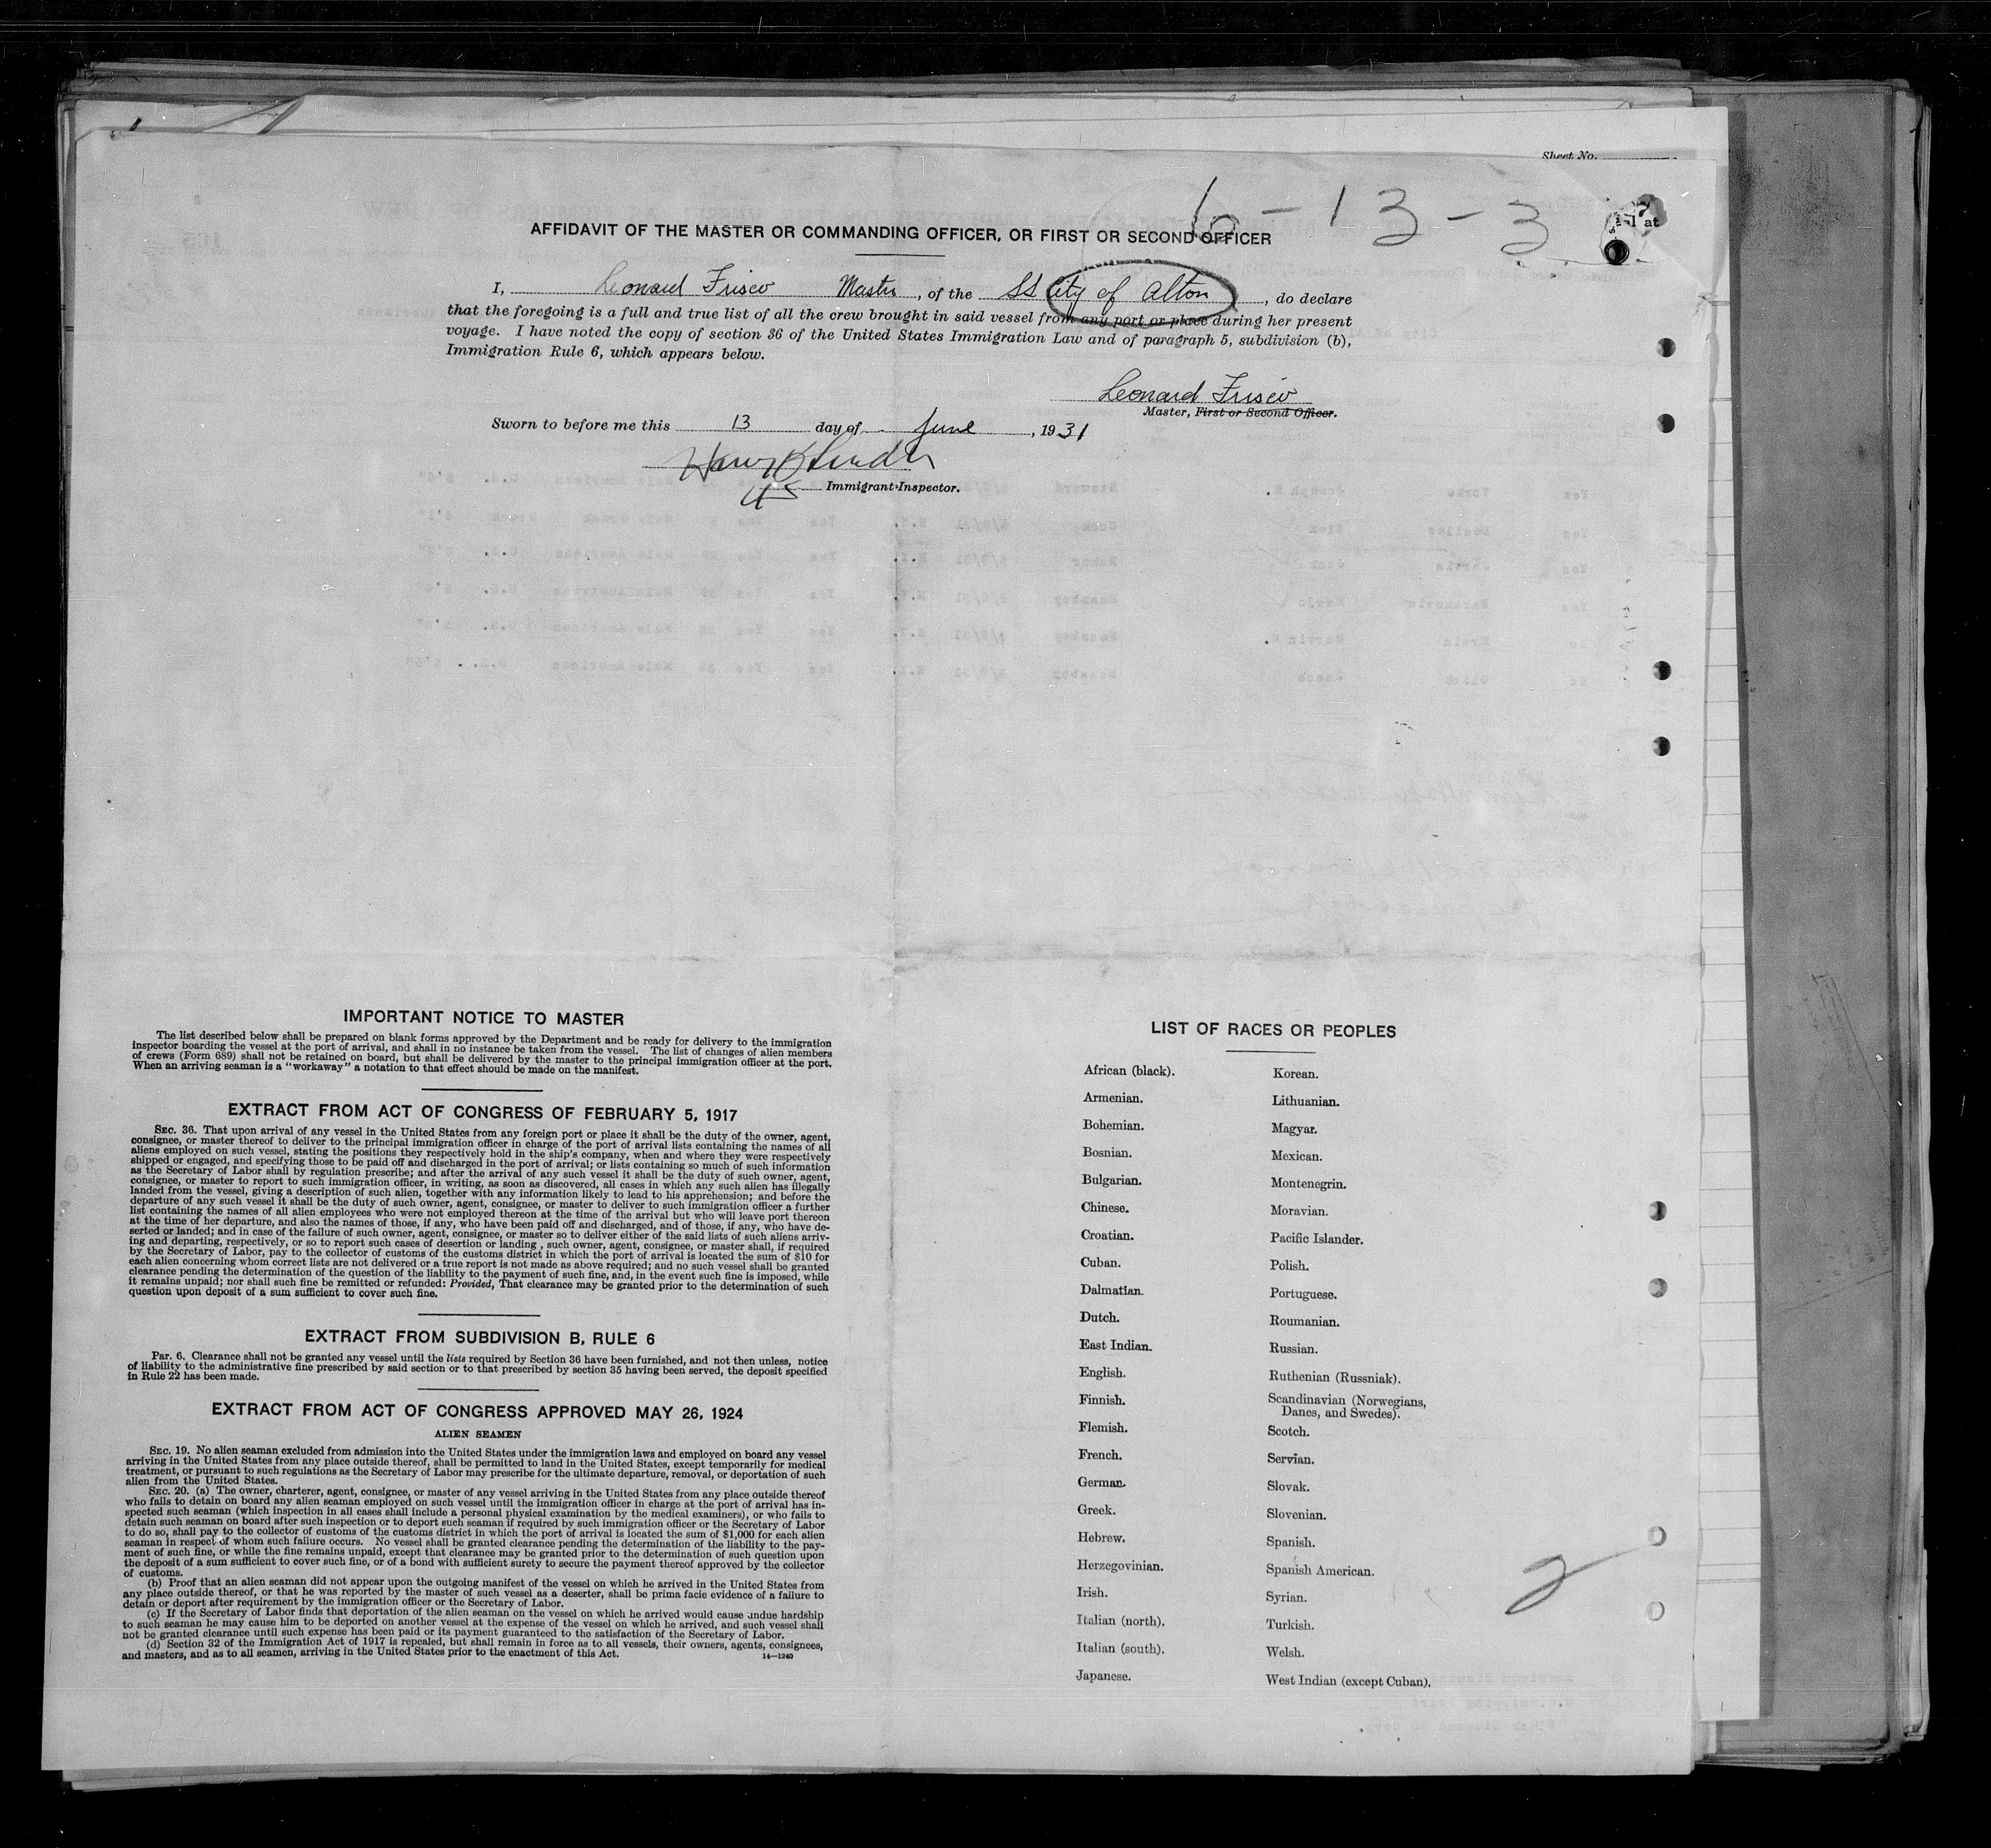 Sheet No.
6-13-3
al at
AFFIDAVIT OF THE MASTER OR COMMANDING OFFICER, OR FIRST OR SECOND OFFICER
I, Leonard Frisco Master, of the SS City of Alton, do declare
that the foregoing is a full and true list of all the crew brought in said vessel from any port or place during her present
voyage. I have noted the copy of section 36 of the United States Immigration Law and of paragraph 5, subdivision (b),
Immigration Rule 6, which appears below.
Leonard Frisco
Master, First or Second Officer.
Sworn to before me this 13 day of June, 1931
Immigrant Inspector.
IMPORTANT NOTICE TO MASTER
The list described below shall be prepared on blank forms approved by the Department and be ready for delivery to the immigration
inspector boarding the vessel at the port of arrival, and shall in no instance be taken from the vessel. The list of changes of alien members
of crews (Form 689) shall not be retained on board, but shall be delivered by the master to the principal immigration officer at the port.
When an arriving seaman is a "workaway" a notation to that effect should be made on the manifest.
EXTRACT FROM ACT OF CONGRESS OF FEBRUARY 5, 1917
SEC. 36. That upon arrival of any vessel in the United States from any foreign port or place it shall be the duty of the owner, agent,
consignee, or master thereof to deliver to the principal immigration officer in charge of the port of arrival lists containing the names of all
aliens employed on such vessel, stating the positions they respectively hold in the ship's company, when and where they were respectively
shipped or engaged, and specifying those to be paid off and discharged in the port of arrival; or lists containing so much of such information
as the Secretary of Labor shall by regulation prescribe; and after the arrival of any such vessel it shall be the duty of such owner, agent,
consignee, or master to report to such immigration officer, in writing, as soon as discovered, all cases in which any such alien has illegally
landed from the vessel, giving a description of such alien, together with any information likely to lead to his apprehension; and before the
departure of any such vessel it shall be the duty of such owner, agent, consignee, or master to deliver to such immigration officer a further
list containing the names of all alien employees who were not employed thereon at the time of the arrival but who will leave port thereon
at the time of her departure, and also the names of those, if any, who have been paid off and discharged, and of those, if any, who have de-
serted or landed; and in case of the failure of such owner, agent, consignee, or master so to deliver either of the said lists of such aliens arriv-
ing and departing, respectively, or so to report such cases of desertion or landing, such owner, agent, consignee, or master shall, if required
by the Secretary of Labor, pay to the collector of customs of the customs district in which the port of arrival is located the sum of $10 for
each alien concerning whom correct lists are not delivered or a true report is not made as above required; and no such vessel shall be granted
clearance pending the determination of the question of the liability to the payment of such fine, and, in the event such fine is imposed, while
it remains unpaid; nor shall such fine be remitted or refunded: Provided, That clearance may be granted prior to the determination of such
question upon deposit of a sum sufficient to cover such fine.
EXTRACT FROM SUBDIVISION B, RULE 6
Par. 6. Clearance shall not be granted any vessel until the lists required by Section 36 have been furnished, and not then unless, notice
of liability to the administrative fine prescribed by said section or to that prescribed by section 35 having been served, the deposit specified
in Rule 22 has been made.
EXTRACT FROM ACT OF CONGRESS APPROVED MAY 26, 1924
ALIEN SEAMEN
SEC. 19. No alien seaman excluded from admission into the United States under the immigration laws and employed on board any vessel
arriving in the United States from any place outside thereof, shall be permitted to land in the United States, except temporarily for medical
treatment, or pursuant to such regulations as the Secretary of Labor may prescribe for the ultimate departure, removal, or deportation of such
alien from the United States.
SEC. 20. (a) The owner, charterer, agent, consignee, or master of any vessel arriving in the United States from any place outside thereof
who fails to detain on board any alien seaman employed on such vessel until the immigration officer in charge at the port of arrival has in-
spected such seaman (which inspection in all cases shall include a personal physical examination by the medical examiners), or who fails to
detain such seaman on board after such inspection or to deport such seaman if required by such immigration officer or the Secretary of Labor
to do so, shall pay to the collector of customs of the customs district in which the port of arrival is located the sum of $1,000 for each alien
seaman in respect of whom such failure occurs. No vessel shall be granted clearance pending the determination of the liability to the pay-
ment of such fine, or while the fine remains unpaid, except that clearance may be granted prior to the determination of such question upon
the deposit of a sum sufficient to cover such fine, or of a bond with sufficient surety to secure the payment thereof approved by the collector
of customs.
(b) Proof that an alien seaman did not appear upon the outgoing manifest of the vessel on which he arrived in the United States from
any place outside thereof, or that he was reported by the master of such vessel as a deserter, shall be prima facie evidence of a failure to
detain or deport after requirement by the immigration officer or the Secretary of Labor.
(c) If the Secretary of Labor finds that deportation of the alien seaman on the vessel on which he arrived would cause undue hardship
to such seaman he may cause him to be deported on another vessel at the expense of the vessel on which he arrived, and such vessel shall
not be granted clearance until such expense has been paid or its payment guaranteed to the satisfaction of the Secretary of Labor.
(d) Section 32 of the Immigration Act of 1917 is repealed, but shall remain in force as to all vessels, their owners, agents, consignees,
and masters, and as to all seamen, arriving in the United States prior to the enactment of this Act.
14—1240
LIST OF RACES OR PEOPLES
African (black).
Armenian.
Bohemian.
Bosnian.
Bulgarian.
Chinese.
Croatian.
Cuban.
Dalmatian.
Dutch.
East Indian.
English.
Finnish.
Flemish.
French.
German.
Greek.
Hebrew.
Herzegovinian.
Irish.
Italian (north).
Italian (south).
Japanese.
Korean.
Lithuanian.
Magyar.
Mexican.
Montenegrin.
Moravian.
Pacific Islander.
Polish.
Portuguese.
Roumanian.
Russian.
Ruthenian (Russniak).
Scandinavian (Norwegians,
Danes, and Swedes).
Scotch.
Servian.
Slovak.
Slovenian.
Spanish.
Spanish American.
Syrian.
Turkish.
Welsh.
West Indian (except Cuban).
2